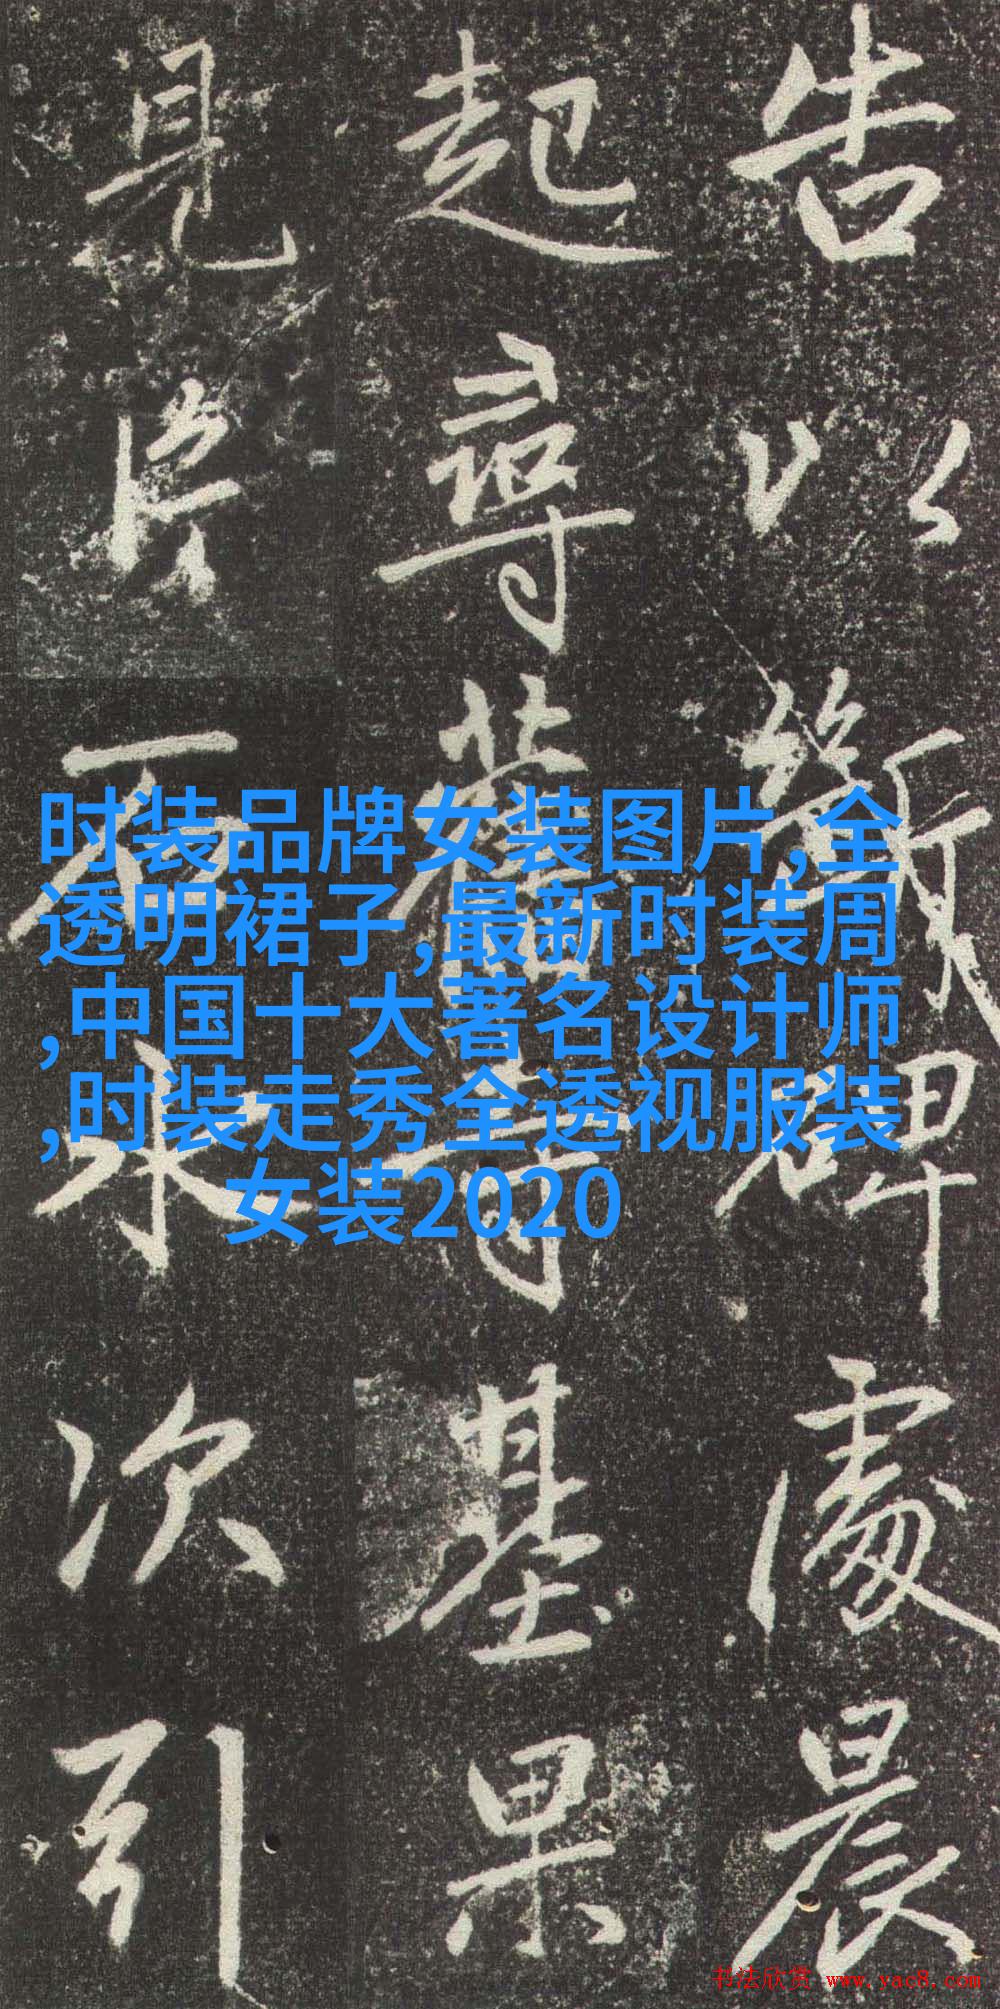 告以碑處晨
起尋舊寺基果
見水次引
时装品牌女装图片,全
透明裙子,最新时装周
,中国十大著名设计师
,时装走秀全透视服装
女装2020
书法欣赏 www.yac8.com